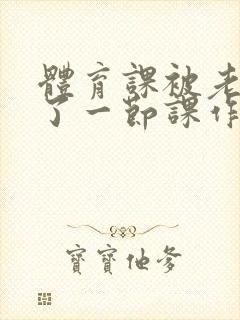 體育課被老
了一節課作
寶寶他爹